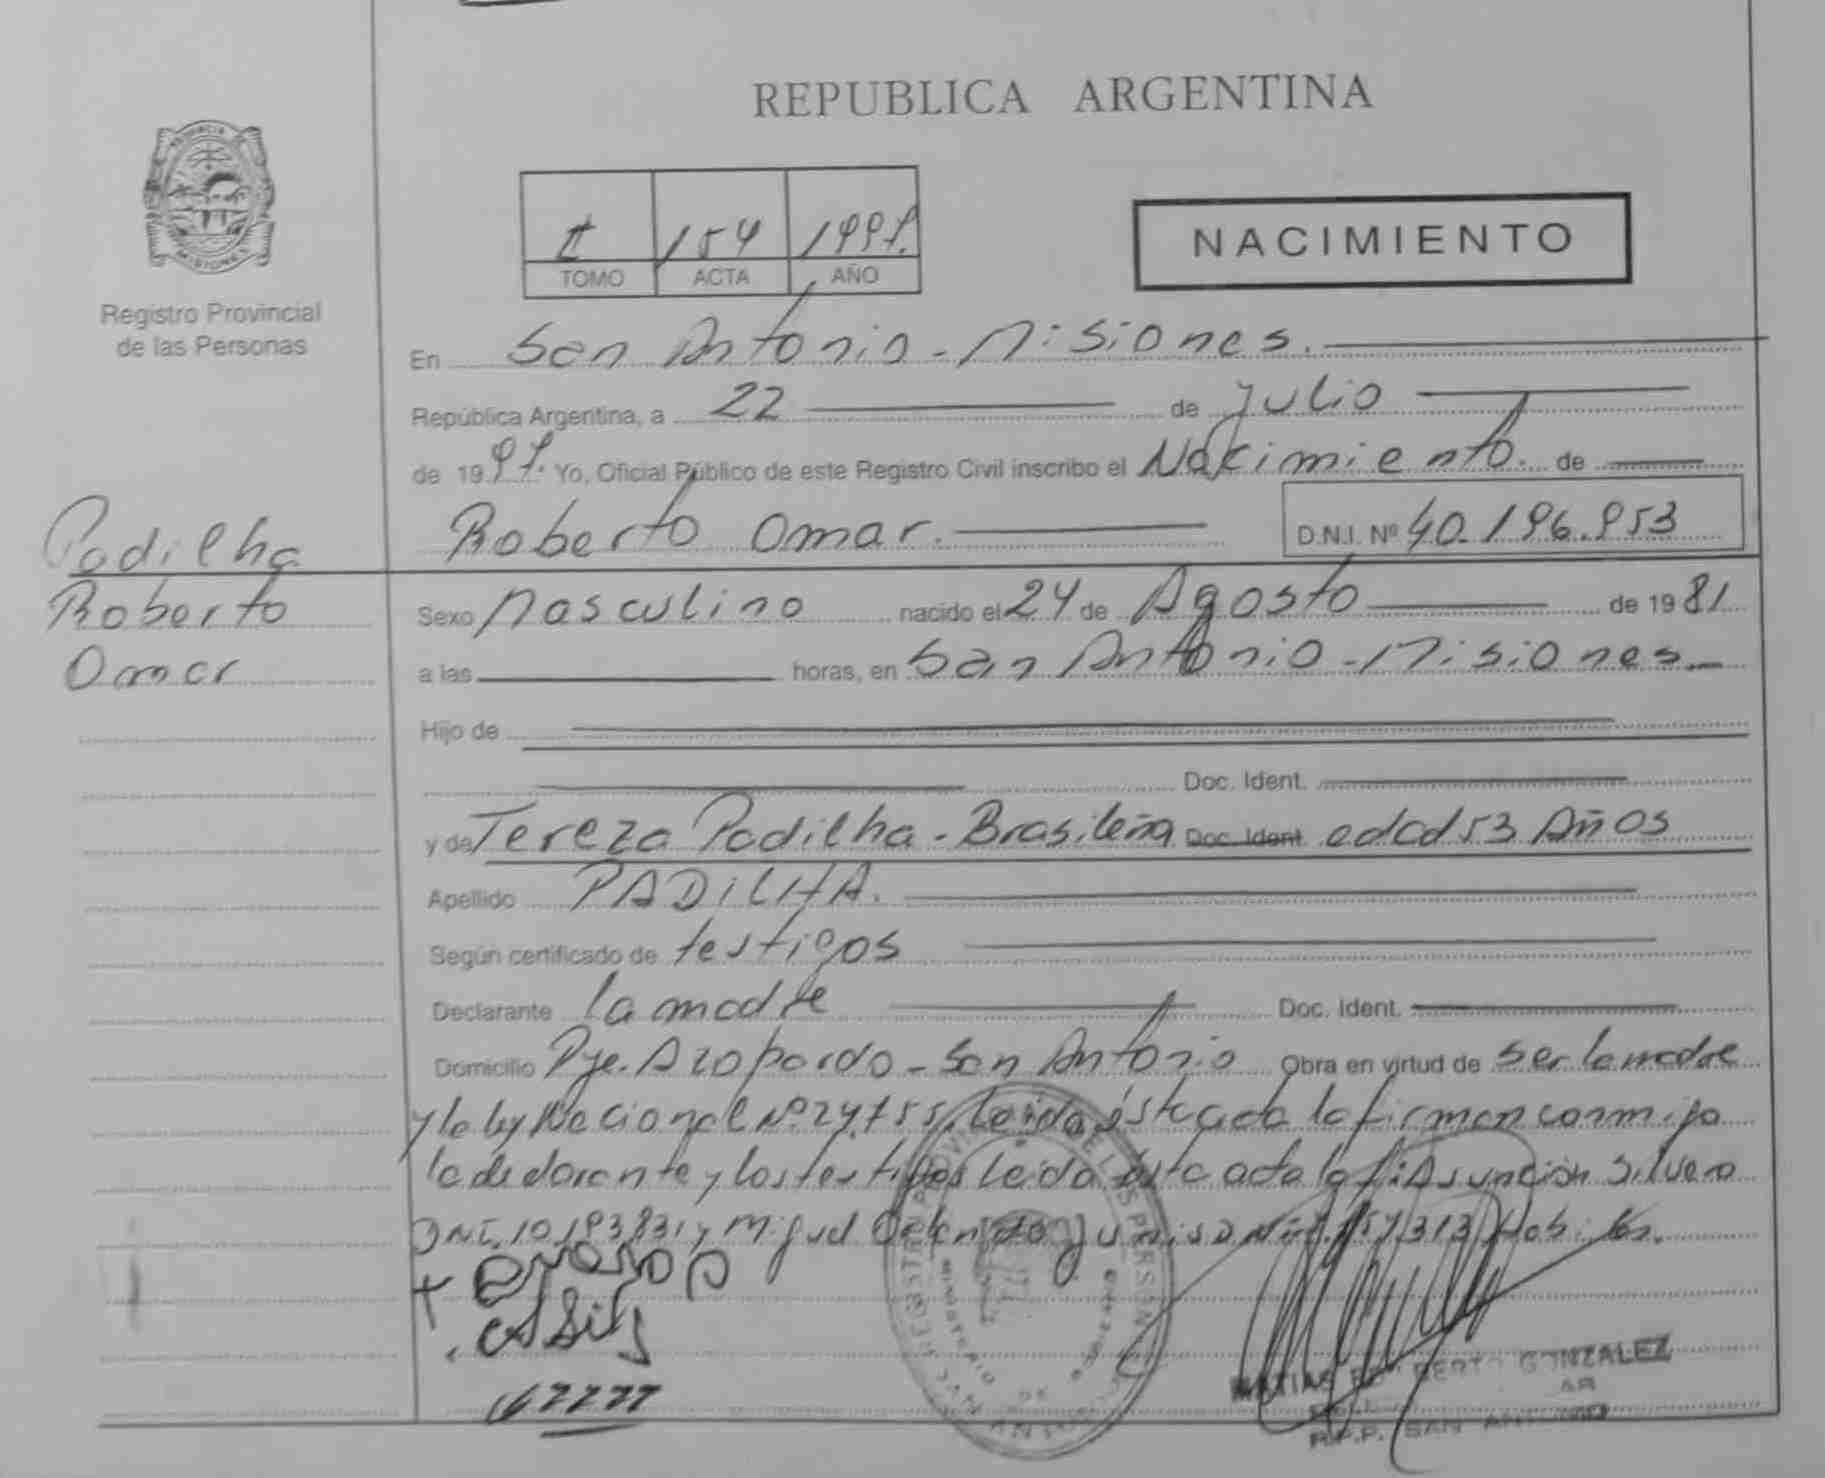 REPUBLICA ARGENTINA
PROVINCIA DE
MISIONES
Registro Provincial
de las Personas
154 1997.
TOMO ACTA AÑO
NACIMIENTO
En San Antonio - Misiones.
República Argentina, a 22 de Julio
de 1997. Yo, Oficial Público de este Registro Civil inscribo el Nacimiento. de
Padilha
Roberto Omar. D.N.I. Nº 40.196.953
Roberto
Sexo Masculino nacido el 24 de Agosto de 1981
Omar
a las horas, en San Antonio - Misiones.
Hijo de
Doc. Ident.
y de Tereza Padilha - Brasileña Doc. Ident. edad 53 Años
Apellido PADILHA.
Según certificado de testigos
Declarante la madre Doc. Ident.
Domicilio Pje. Azopardo - San Antonio Obra en virtud de ser la madre
y la ley Nacional Nº 24.755. Leida ésta acta la firman conmigo
la declarante y los testigos leida ésta acta la f: Asunción Silvero
DNI. 10.193.831 y Miguel Habiles.
MATIAS GONZALEZ
R.P.P. SAN ANTONIO